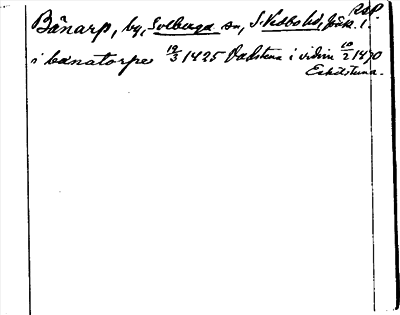 RAP
Bänarp, by, Solberga sn, S. Vedbo hd, Jönk. l.
i bænatorpe 12/3 1425 Vadstena i vidim 10/2 1470
Eskilstuna.